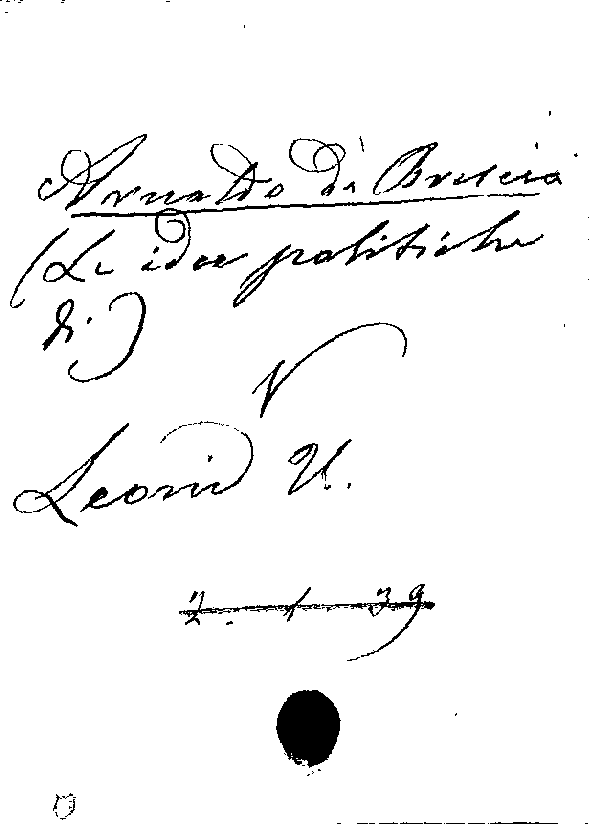 Arnaldo da Brescia
(Le idee politiche
di)
V
Leonij U.
2. 1 39